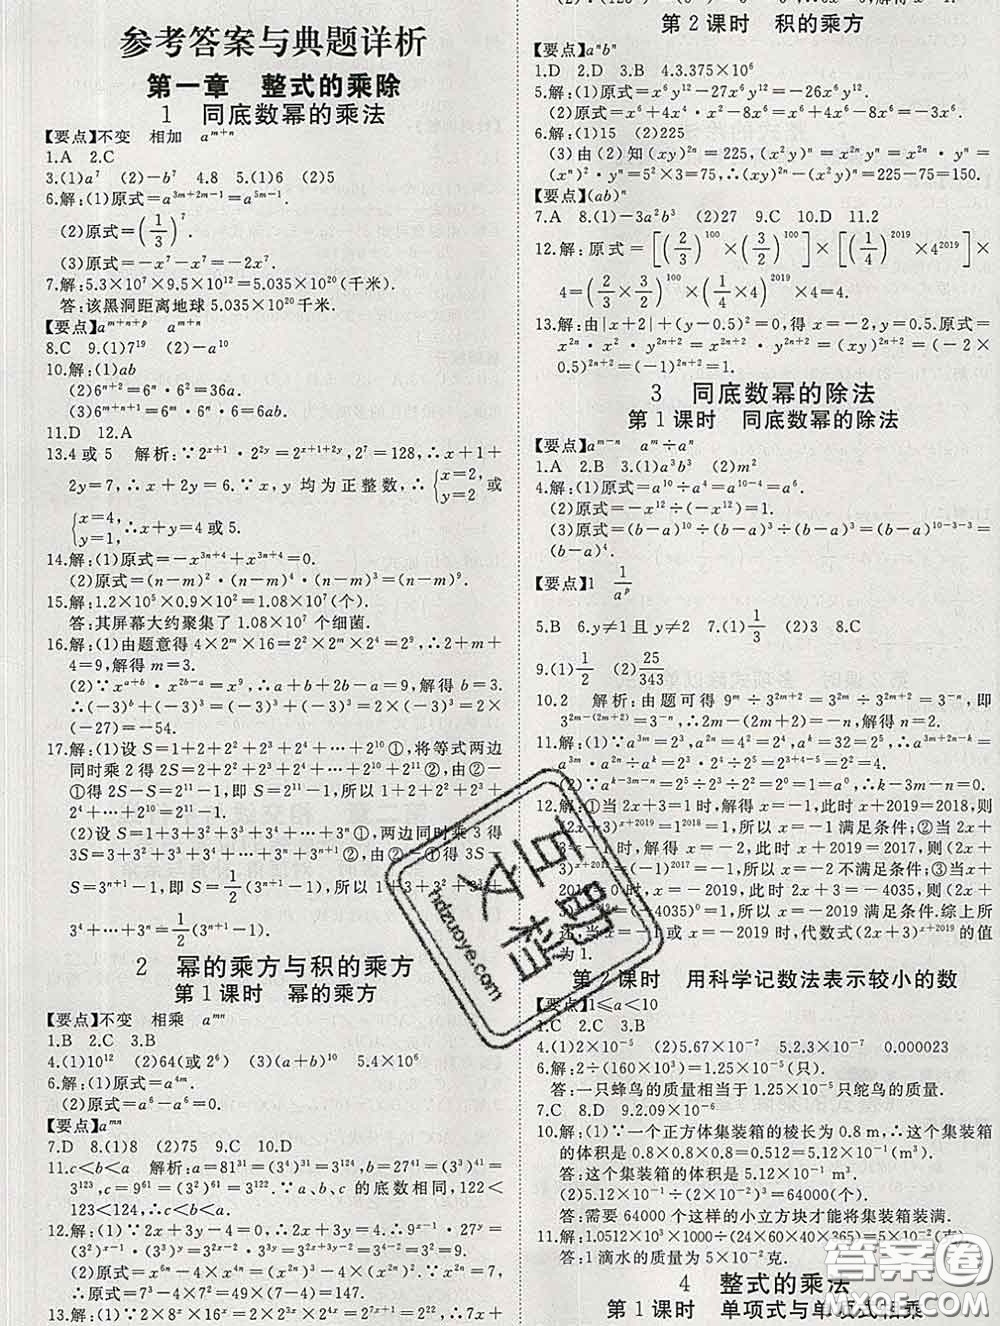 参考答案与典题详析
第一章 整式的乘除
1 同底数幂的乘法
【要点】不变 相加 a^{m+n}
1.A 2.C
3.(1)a^7 (2)-b^7 4.8 5.(1)6 (2)5
6.解:(1)原式=a^{3m+2m-1}=a^{5m-1}.
(2)原式=(1/3)^7.
(3)原式=-x^7-x^7=-2x^7.
7.解:5.3×10^7×9.5×10^{12}=5.035×10^{20}(千米).
答:该黑洞距离地球 5.035×10^{20}千米.
【要点】a^{m+n+p} a^{m+n}
8.C 9.(1)7^{19} (2)-a^{10}
10.解:(1)ab
(2)6^{n+2}=6^n·6^2=36a.
(3)6^{m+n+1}=6^m·6^n·6=6ab.
11.D 12.A
13.4 或 5 解析:∵2^{x+1}·2^{2y}=2^{x+1+2y},2^7=128,∴x+1+
2y=7,∴x+2y=6.∵x,y 均为正整数,∴{x=2, y=2 或
{x=4, y=1,∴x+y=4 或 5.
14.解:(1)原式=-x^{3n+4}+x^{3n+4}=0.
(2)原式=(n-m)^2·(n-m)^4·(n-m)^3=(n-m)^9.
15.解:1.2×10^5×0.9×10^2=1.08×10^7(个).
答:其屏幕大约聚集了 1.08×10^7 个细菌.
16.解:(1)由题意得 4×2^m×16=2^2×2^m×2^4=2^9,∴2+m+
4=9,解得 m=3.
(2)∵x^{a+b}·x^{2b-a}=x^9,∴a+b+2b-a=9,解得 b=3,
∴(-3)^b+(-3)^3=(-3)^3+(-3)^3=2×(-3)^3=2×
(-27)=-54.
17.解:(1)设 S=1+2+2^2+2^3+2^4+…+2^{10}①,将等式两边
同时乘 2 得 2S=2+2^2+2^3+2^4+…+2^{10}+2^{11}②,由②-
①得 2S-S=2^{11}-1,即 S=2^{11}-1,所以 1+2+2^2+2^3+
2^4+…+2^{10}=2^{11}-1.
(2)设 S=1+3+3^2+3^3+3^4+…+3^n①,两边同时乘 3 得
3S=3+3^2+3^3+3^4+…+3^n+3^{n+1}②,由②-①得 3S-
S=3^{n+1}-1,即 S=1/2(3^{n+1}-1),所以 1+3+3^2+3^3+
3^4+…+3^n=1/2(3^{n+1}-1).
2 幂的乘方与积的乘方
第 1 课时 幂的乘方
【要点】不变 相乘 a^{mn}
1.B 2.C 3.B
4.(1)10^{12} (2)64(或 2^6) (3)(a+b)^{10} 5.4×10^6
6.解:(1)原式=a^{4m}.
(2)原式=a^6-a^6=0.
【要点】a^{mn}
7.D 8.(1)8 (2)75 9.C 10.D
11.c<b<a 解析:a=81^{31}=(3^4)^{31}=3^{124},b=27^{41}=(3^3)^{41}=
3^{123},c=9^{61}=(3^2)^{61}=3^{122}.∵a、b、c 的底数相同,122<
123<124,∴c<b<a.
12.解:(1)∵2x+3y-4=0,∴2x+3y=4,∴9^{x-1}·27^y=
(3^2)^{x-1}·(3^3)^y=3^{2x-2}·3^{3y}=3^{2x+3y-2}=3^{4-2}=3^2=9.
(2)原式=x^{6n}-4x^{4n}=(x^{2n})^3-4(x^{2n})^2,∵x^{2n}=7,∴
原式=7^3-4×7^2=343-4×49=343-196=147.
13.解:(1)∵2×8^x×16^x=2×2^{3x}×2^{4x}=2^{1+3x+4x},∴7x+
第 2 课时 积的乘方
【要点】a^n b^n
1.D 2.D 3.B 4.3.375×10^6
5.解:(1)原式=x^6y^{12}-27x^6y^{12}=-26x^6y^{12}.
(2)原式=x^6+4x^6-8x^6-x^6=4x^6-8x^6=-4x^6.
6.解:(1)15 (2)225
(3)由(2)知(xy)^{2n}=225,(x^2y)^{2n}=x^{4n}y^{2n}=x^{4n}·y^{2n}=
(x^n)^4·y^{2n}=5^2×3=75,∴(xy)^{2n}-(x^2y)^{2n}=225-75=150.
【要点】(ab)^n
7.A 8.(1)-3a^2b^3 (2)27 9.C 10.D 11.2
12.解:原式=[(2/3)^{100}×(3/2)^{100}]×[(1/4)^{2019}×4^{2019}]×
4=(2/3×3/2)^{100}×(1/4×4)^{2019}×4=4.
13.解:由|x+2|+(y-0.5)^2=0,得 x=-2,y=0.5.原式=
x^{2n}·x^2·y^{2n+2}=x^{2n+2}·y^{2n+2}=(xy)^{2n+2}=(-2×
0.5)^{2n+2}=(-1)^{2n+2}=1.
3 同底数幂的除法
第 1 课时 同底数幂的除法
【要点】a^{m-n} a^m÷a^n
1.A 2.B 3.(1)a^3b^3 (2)m^2
4.解:(1)原式=a^{10}÷a^4=a^{10-4}=a^6.
(2)原式=-x^{12}÷(-x^{12})=1.
(3)原式=(b-a)^{10}÷(b-a)^3÷(b-a)^3=(b-a)^{10-3-3}=
(b-a)^4.
【要点】1 1/a^p
5.B 6.y≠1 且 y≠2 7.(1)1/3 (2)3 8.C
9.(1)1/2 (2)25/343
10.2 解析:由题可得 9^m÷3^{2m+2}=3^{2m}÷3^{2m+2}=3^{-n},即
3^{2m-(2m+2)}=3^{-n},∴2m-(2m+2)=-n,解得 n=2.
11.解:(1)∵a^{3m}=2^3,a^{2n}=4^2=2^4,a^k=32=2^5,∴a^{3m+2n-k}=
a^{3m}·a^{2n}÷a^k=2^3·2^4÷2^5=2^{3+4-5}=2^2=4.
(2)∵a^{k-3m-n}=2^5÷2^3÷2^2=1=a^0,∴k-3m-n=0.
12.解:①当 2x+3=1 时,解得 x=-1,此时 x+2019=2018,则
(2x+3)^{x+2019}=1^{2018}=1,所以 x=-1 满足条件;②当 2x+
3=-1 时,解得 x=-2,此时 x+2019=2017,则(2x+
3)^{x+2019}=(-1)^{2017}=-1,所以 x=-2 不满足条件;③当 x+
2019=0 时,x=-2019,此时 2x+3=-4035,则(2x+
3)^{x+2019}=(-4035)^0=1,所以 x=-2019 满足条件.综上所
述,当 x=-1 或 x=-2019 时,代数式(2x+3)^{x+2019} 的值
为 1.
第 2 课时 用科学记数法表示较小的数
【要点】1≤a<10
1.C 2.C 3.B
4.(1)2×10^{-5} (2)5.67×10^{-7} 5.2.3×10^{-7} 0.000023
6.解:2÷(1.6×10^5)=1.25×10^{-5}(只).
答:一只蜂鸟的质量相当于 1.25×10^{-5} 只鸵鸟的质量.
7.C 8.D 9.2.09×10^{-6}
10.解:(1)∵一个正方体集装箱的棱长为 0.8 m,∴这个集装箱
的体积是 0.8×0.8×0.8=0.512=5.12×10^{-1}(m^3).
答:这个集装箱的体积是 5.12×10^{-1} m^3.
(2)5.12×10^{-1}÷(2×10^{-2})^3=64000(个).
答:需要 64000 个这样的小立方块才能将集装箱装满.
11.解:1.0512×10^3×1000÷(24×60×40×365)=5×10^{-2}(克).
答:1 滴水的质量为 5×10^{-2}克.
4 整式的乘法
第 1 课时 单项式与单项式相乘
hdzuoye.com
答案圈
MXQE.COM